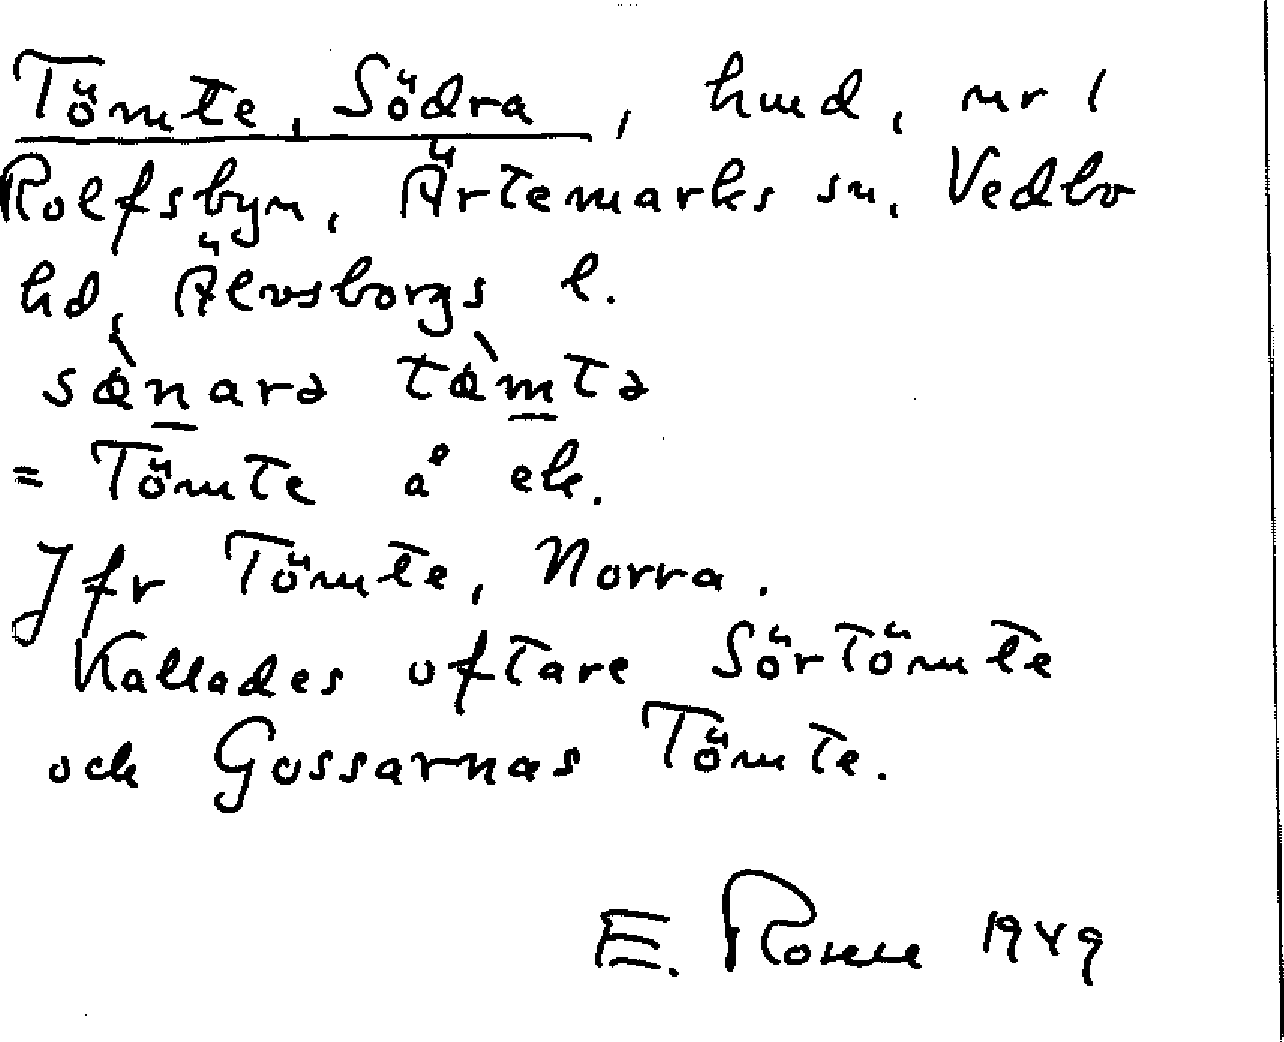 Tömte, Södra, hmd, nr 1
Rolfsbyn, Ärtemarks sn, Vedbo
hd, Älvsborgs l.
sànarə tàmtə
= Tömte å ek.
Jfr Tömte, Norra.
Kallades oftare Sörtömte
och Gossarnas Tömte.
E. 1949